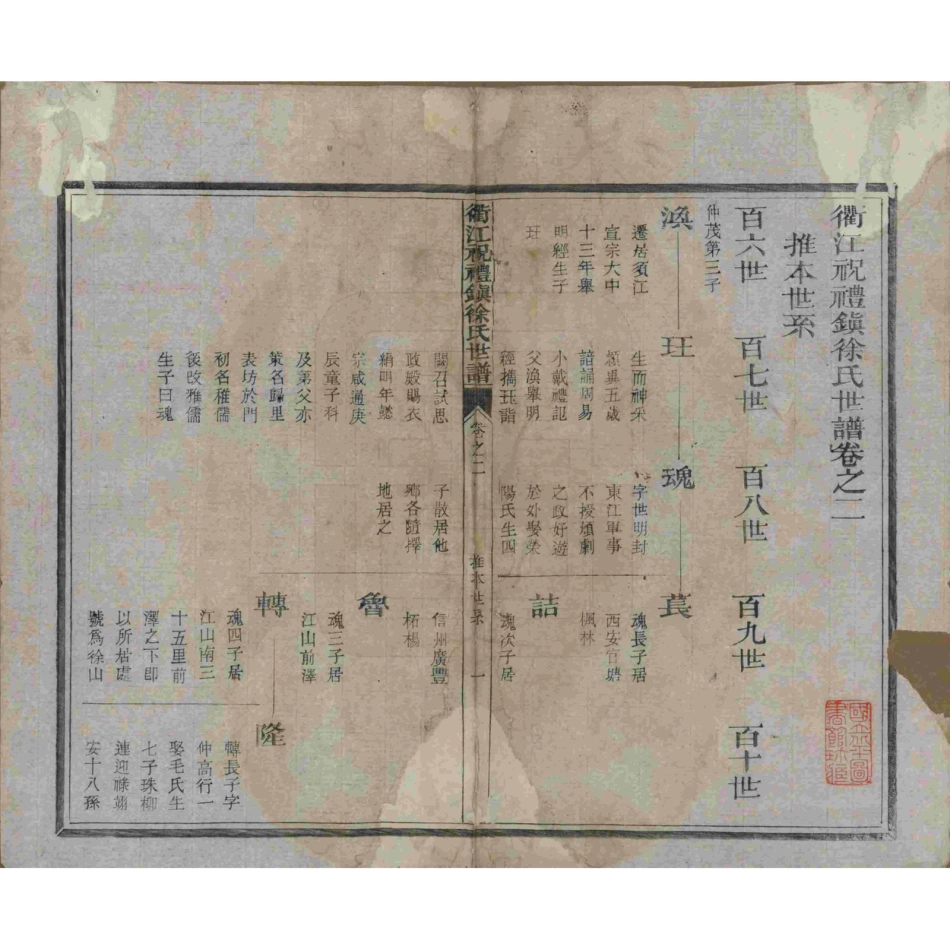 衢江祝禮鎮徐氏世譜卷之二
推本世系
百六世
百七世
百八世
百九世
百十世
仲茂第三子
渙
遷居須江
宣宗大中
十三年舉
明經生子
玨
玨
生而神采
穎異五歲
諳誦周易
小戴禮記
父渙舉明
經攜玨詣
闕召試思
政殿賜衣
絹明年懿
宗咸通庚
辰童子科
及第父亦
策名歸里
表坊於門
初名稚儒
後改雅儒
生子曰魂
魂
字世明封
東江軍事
不授煩劇
之政好遊
於外娶榮
陽氏生四
子散居他
鄉各隨擇
地居之
萇
魂長子居
西安官塘
楓林
詰
魂次子居
信州廣豐
柘楊
魯
魂三子居
江山前澤
轉
魂四子居
江山南三
十五里前
澤之下即
以所居處
號為徐山
隆
轉長子字
仲高行一
娶毛氏生
七子珠柳
連迎祿翊
安十八孫
衢江祝禮鎮徐氏世譜
卷之二
推本世系
一